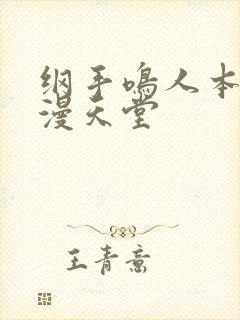 纲手鸣人本
漫天堂
王青意